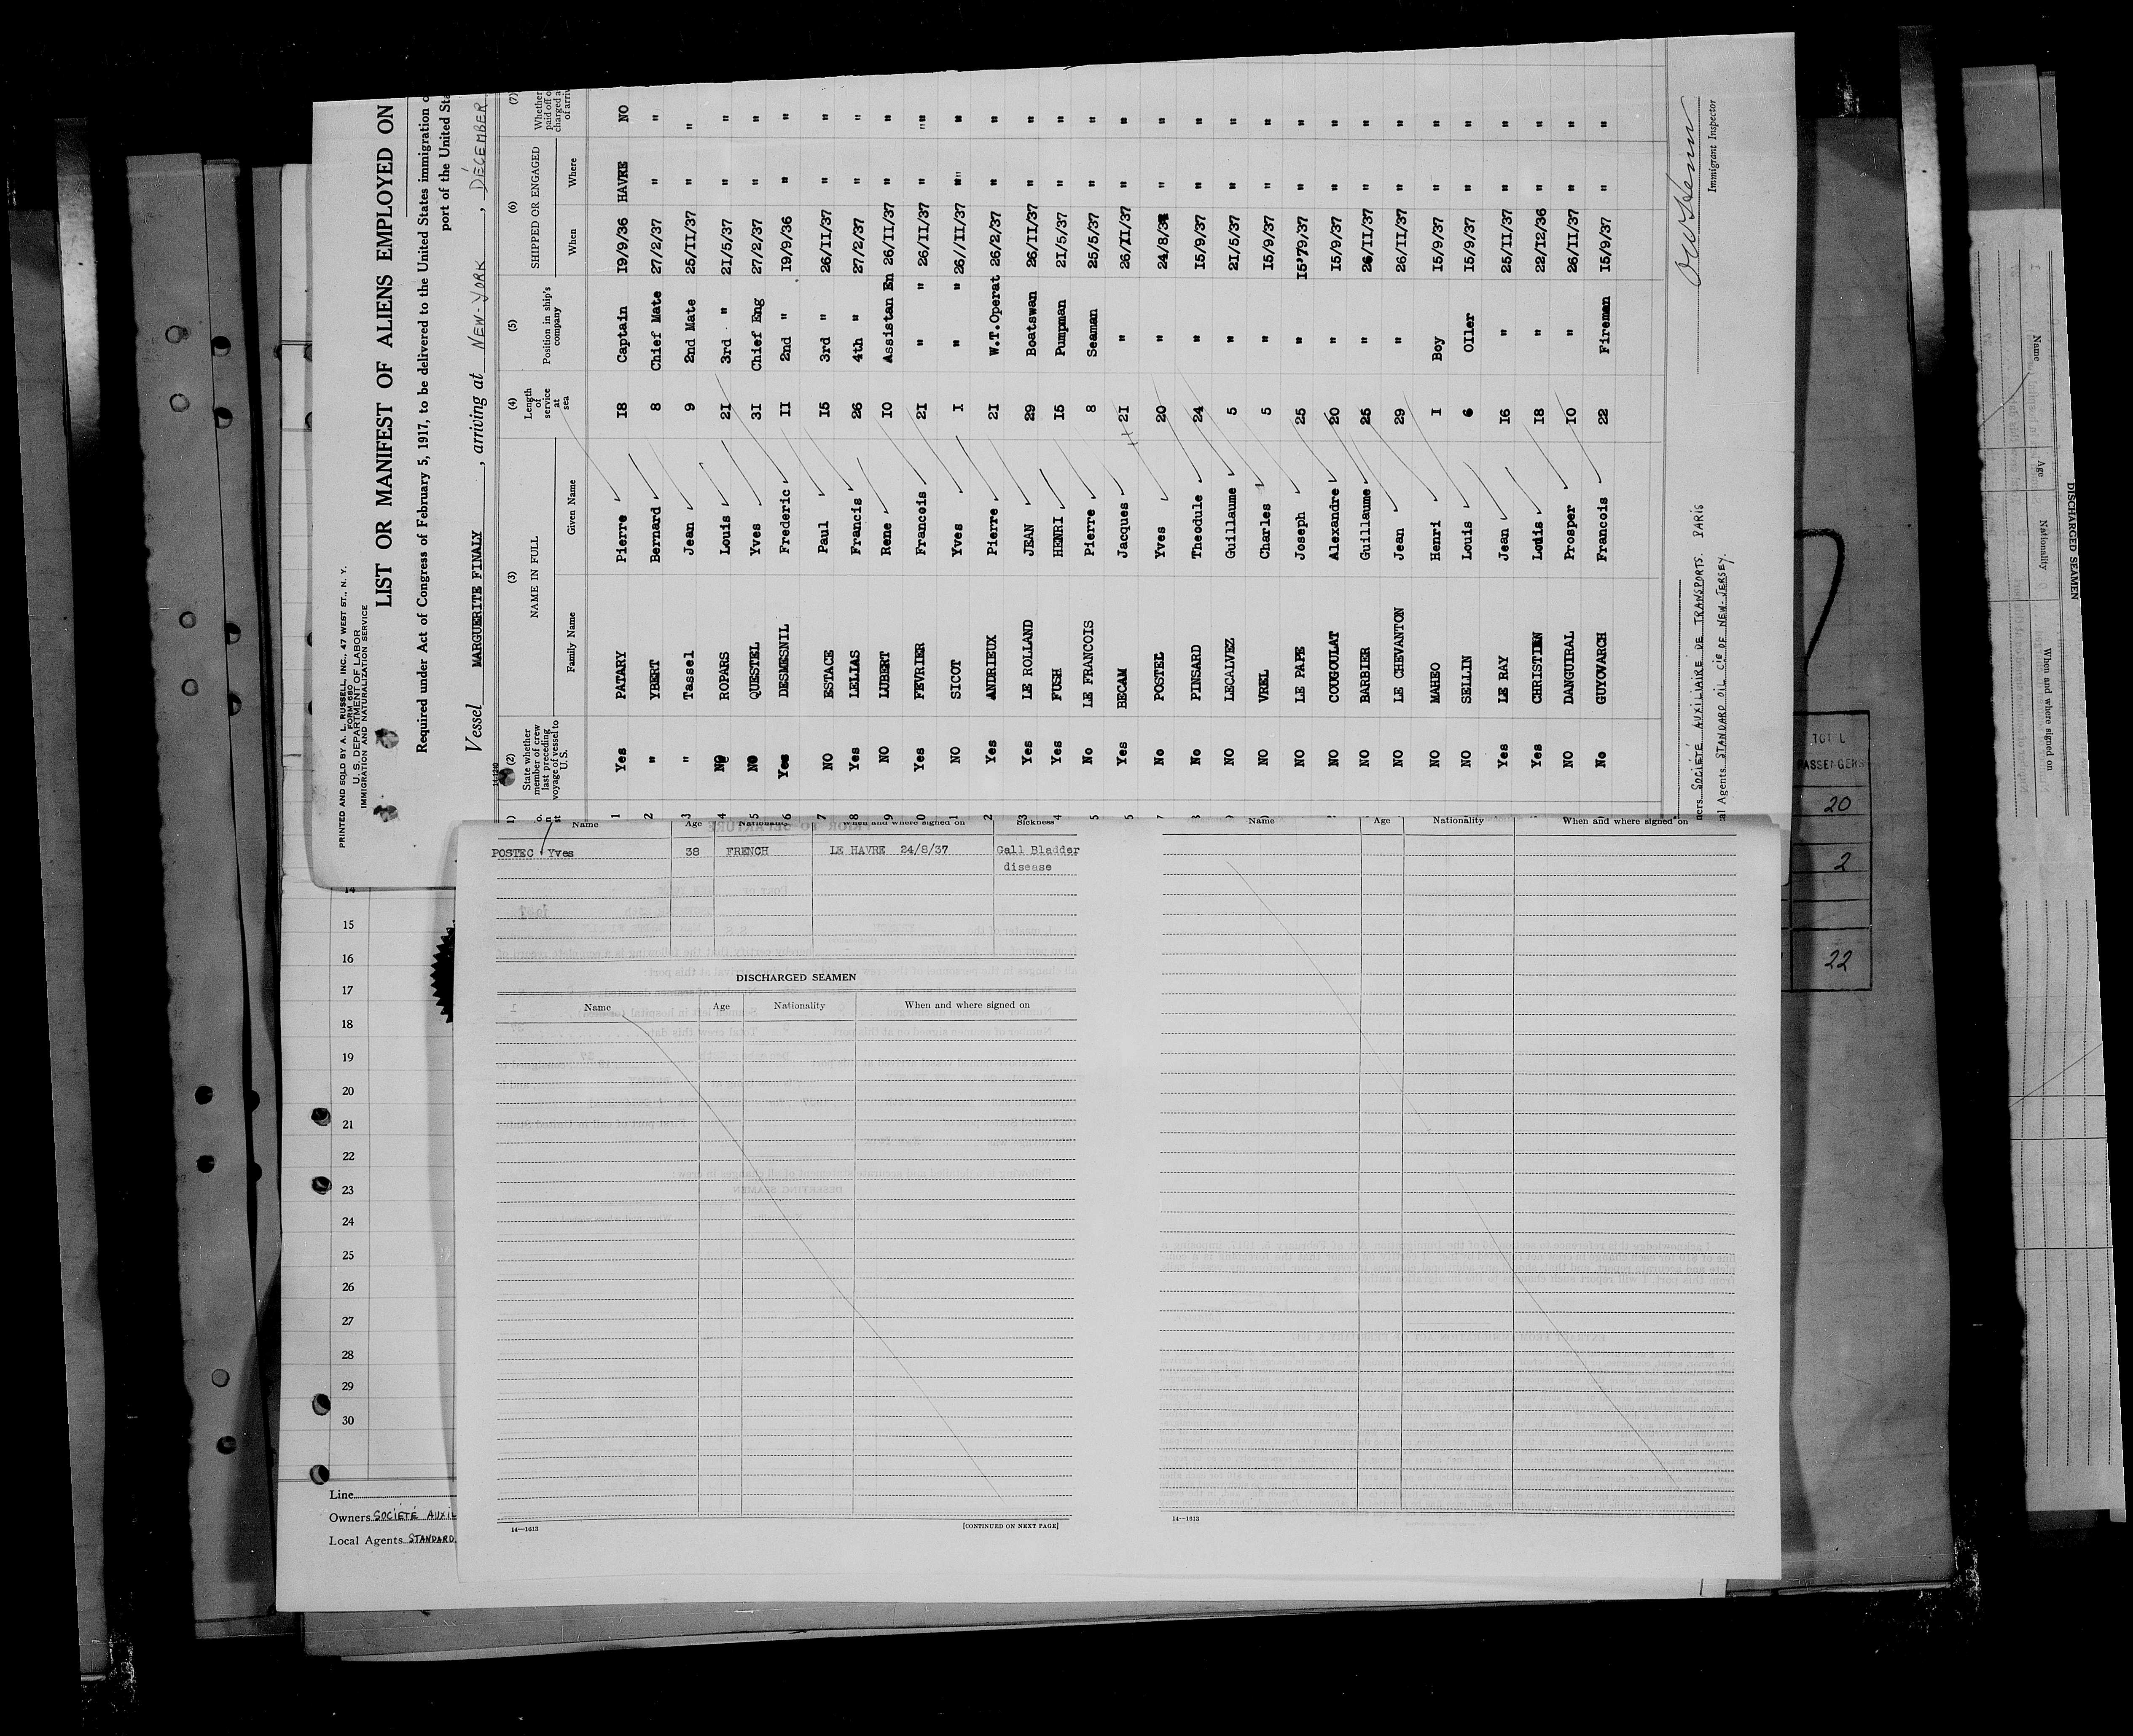 PRINTED AND SOLD BY A. L. RUSSELL, INC., 47 WEST ST., N. Y.
FORM 680
U. S. DEPARTMENT OF LABOR
IMMIGRATION AND NATURALIZATION SERVICE
LIST OR MANIFEST OF ALIENS EMPLOYED ON
Required under Act of Congress of February 5, 1917, to be delivered to the United States immigration
port of the United
Vessel MARGUERITE FINALY, arriving at NEW-YORK, DÉCEMBER
(2) (3) (4) (5) (6) (7)
State whether member of crew last preceding voyage of vessel to U.S. NAME IN FULL Family Name Given Name Length of service at sea Position in ship's company SHIPPED OR ENGAGED When Where Whether paid off
1 Yes PATARY Pierre 18 Captain 19/9/36 HAVRE NO
2 " YBERT Bernard 8 Chief Mate 27/2/37 " "
3 " Tassel Jean 9 2nd Mate 25/II/37 " "
4 NO ROPARS Louis 2I 3rd " 2I/5/37 " "
5 NO QUESTEL Yves 3I Chief Eng 27/2/37 " "
6 Yes DESMESNIL Frederic II 2nd " I9/9/36 " "
7 NO ESTACE Paul I5 3rd " 26/II/37 " "
8 Yes LELIAS Francis 26 4th " 27/2/37 " "
9 NO LUBERT Rene IO Assistan En 26/II/37 " "
0 Yes FEVRIER Francois 2I " " 26/II/37 " ""
1 NO SICOT Yves I " " 26//II/37 " "
2 Yes ANDRIEUX Pierre 2I W.T.Operat 26/2/37 " "
3 Yes LE ROLLAND JEAN 29 Boatswan 26/II/37 " "
4 Yes FUSH HENRI I5 Pumpman 2I/5/37 " "
5 No LE FRANCOIS Pierre 8 Seaman 25/5/37 " "
Yes BECAM Jacques 2I " 26/II/37 " "
7 No POSTEL Yves 20 " 24/8/3 " "
8 No PINSARD Theodule 24 " I5/9/37 " "
9 NO LECALVEZ Guillaume 5 " 2I/5/37 " "
0 NO VREL Charles 5 " I5/9/37 " "
1 NO LE PAPE Joseph 25 " I5'79/37 " "
2 NO COUGOULAT Alexandre 20 " I5/9/37 " "
3 NO BARBIER Guillaume 25 " 26/II/37 " "
4 NO LE CHEVANTON Jean 29 " 26/II/37 " "
NO MAHEO Henri I Boy I5/9/37 " "
NO SELLIN Louis 6 OIler I5/9/37 " "
Yes LE RAY Jean I6 " 25/II/37 " "
Yes CHRISTIEN Louis I8 " 22/I2/36 " "
NO DANGUIRAL Prosper IO " 26/II/37 " "
No GUYOVARCH Francois 22 Fireman I5/9/37 " "
ners SOCIÉTÉ AUXILIAIRE DE TRANSPORTS. PARIS
al Agents STANDARD OIL Cie OF NEW-JERSEY.
Immigrant Inspector
Name Age Nationality When and where signed on Sickness
POSTEC Yves 38 FRENCH LE HAVRE 24/8/37 Gall Bladder
disease
DISCHARGED SEAMEN
Name Age Nationality When and where signed on
14—1613
[CONTINUED ON NEXT PAGE]
Name Age Nationality When and where signed on
14—1613
14
15
16
17
18
19
20
21
22
23
24
25
26
27
28
29
30
Line
Owners SOCIÉTÉ AUXIL
Local Agents STANDARD
PASSENGERS
20
2
22
DISCHARGED SEAMEN
Name Age Nationality When and where signed on